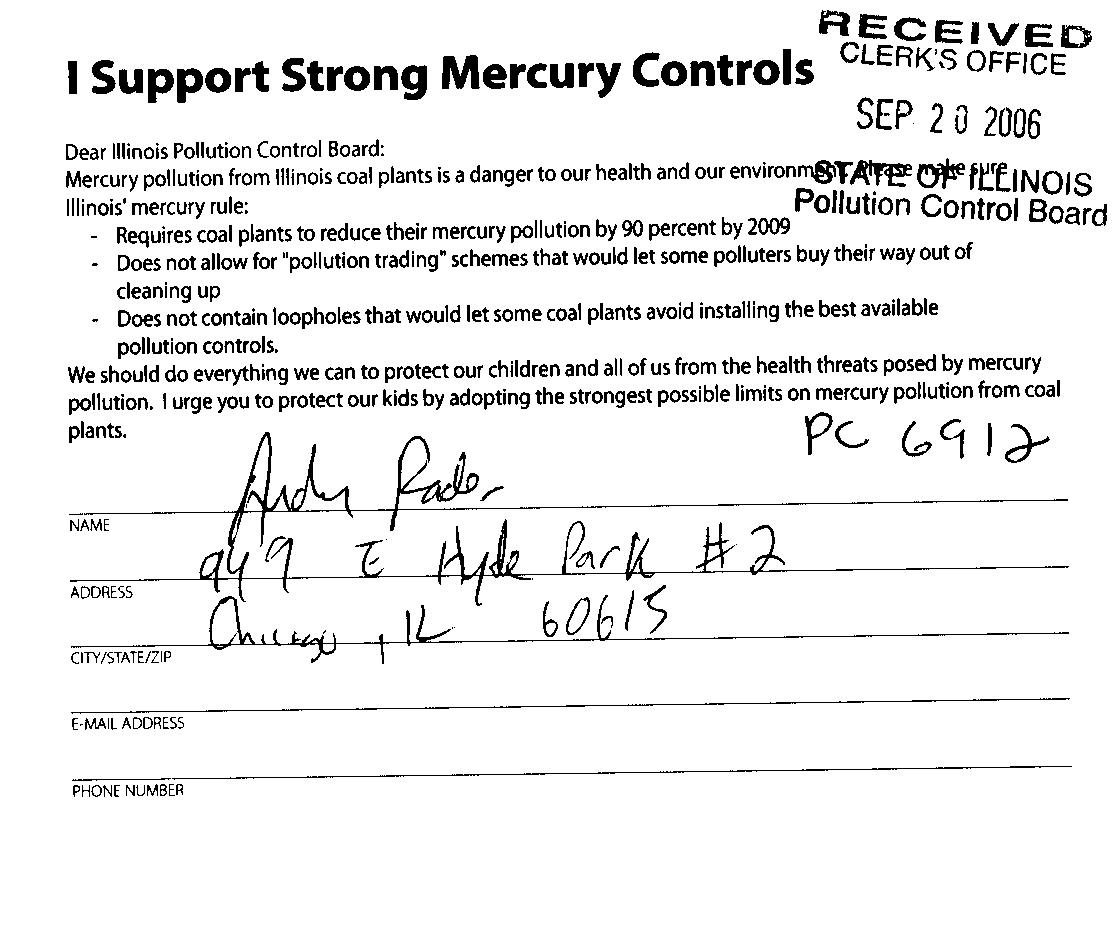 RECEIVED
CLERK'S OFFICE
I Support Strong Mercury Controls
SEP 20 2006
Dear Illinois Pollution Control Board:
Mercury pollution from Illinois coal plants is a danger to our health and our environment. Please make sure
STATE OF ILLINOIS
Illinois' mercury rule:
Pollution Control Board
- Requires coal plants to reduce their mercury pollution by 90 percent by 2009
- Does not allow for "pollution trading" schemes that would let some polluters buy their way out of
cleaning up
- Does not contain loopholes that would let some coal plants avoid installing the best available
pollution controls.
We should do everything we can to protect our children and all of us from the health threats posed by mercury
pollution. I urge you to protect our kids by adopting the strongest possible limits on mercury pollution from coal
plants.
PC 6912
Andy Rader
NAME
949 E Hyde Park #2
ADDRESS
Chicago, IL 60615
CITY/STATE/ZIP
E-MAIL ADDRESS
PHONE NUMBER